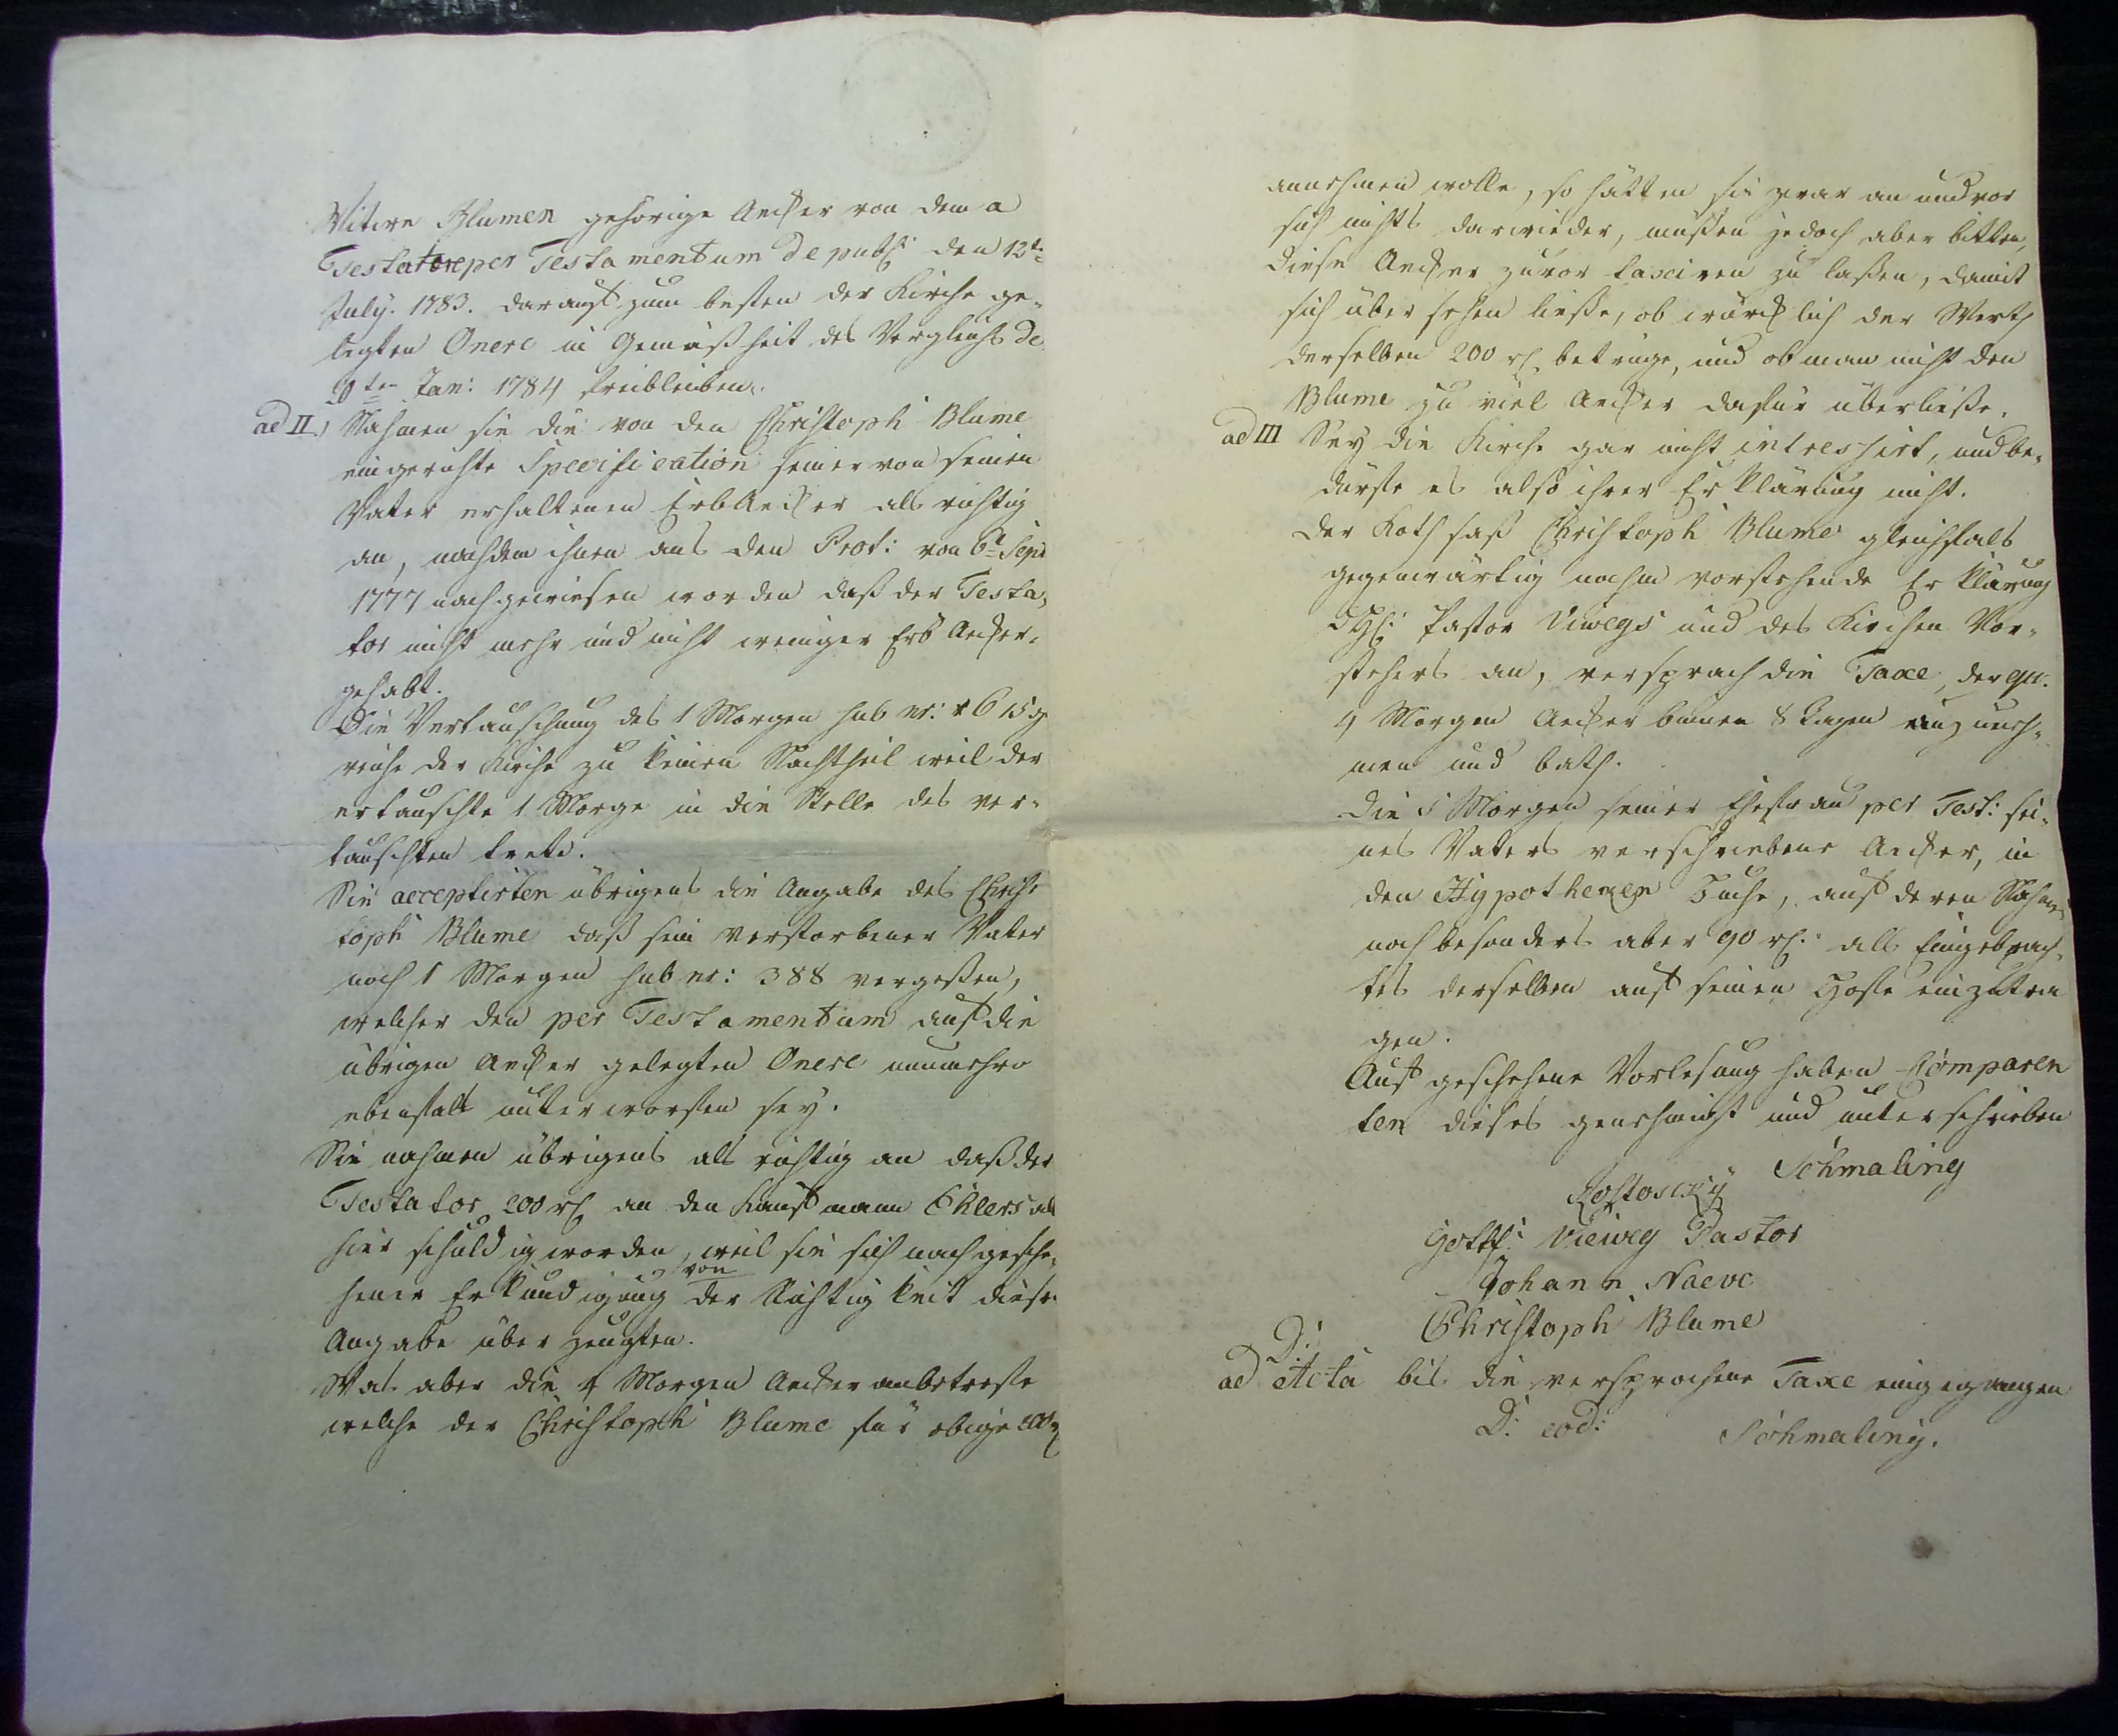 Witwe Blumen gehörige Aecker von dem a
Testatore per Testamentum de publ: den 12t
July. 1783. darauf zum besten der Kirche ge-
legten Onere in Gemäßheit des Vergleichs de
20ten Jan: 1784 freibleiben.
ad II.) Nahmen sie die von den Christoph Blume
eingereichte Specification seiner von seinen
Vater erhaltenen ErbAecker als richtig
an, nachdem ihnen aus den Prot: von 6t Sept
1777 nachgewiesen worden daß der Testa-
tor nicht mehr und nicht weniger Erb Aecker
gehabt.
Die Vertauschung des 1 Morgen sub nr: 615
reiche der Kirche zu keinen Nachtheil weil der
ertauschte 1 Morge in die Stelle des ver-
tauschten trete.
Sie acceptirten übrigens die Angabe des Chris-
toph Blume daß sein verstorbener Vater
noch 1 Morgen sub nr: 388 vergeßen,
welcher den per Testamentum auf die
übrigen Aecker gelegten Onere nunmehro
ebenfals unterworfen sey.
Sie nahmen übrigens als richtig an daß der
Testator 200 rh an den Kaufmann Ehlers al
hier schuldig worden, weil sie sich nach gesche-
hener Erkundigung von der Richtigkeit dieser
Angabe überzeugten.
Was aber die 4 Morgen Aecker anbetreffe
welche der Christoph Blume für obige 200 rh
annehmen wolle, so hätten sie zwar an und vor
sich nichts darwieder, müßen jedoch aber bitten,
diese Aecker zuvor taxiren zu laßen, damit
sich übersehen ließe, ob würcklich der Werth
derselben 200 rh betrüge, und ob man nicht den
Blume zu viel Aecker dafür überließe.
ad III Sey die Kirche gar nicht intressirt, und be-
dürfe es also ihrer Erklärung nicht.
Der Kothsaß Christoph Blume gleichfals
gegenwärtig nahm vorstehende Erklärung
des H: Pastor Viwegs und des Kirchen Vor-
stehers an, versprach die Taxe, der qu.
4 Morgen Aecker binnen 8 Tagen einzureh-
men und bath.
die 5 Morgen seiner Ehefrau per Test: sei-
nes Vaters verschriebene Aecker, in
den Hypothequen Buche, auf deren Nahmen
noch besonders aber 90 rh. als Eingebrach-
tes derselben auf seinen Hofe einzutra
gen.
Auf geschehene Vorlesung haben Comparen
ten dieses genehmigt und unterschrieben
Schmaling
Rostosky
Gottf: Vieweg Pastor
Johann Naeve
Christoph Blume
D:
ad Acta bis die versprochene Taxe eingegangen
D: eod:
Schmaling.